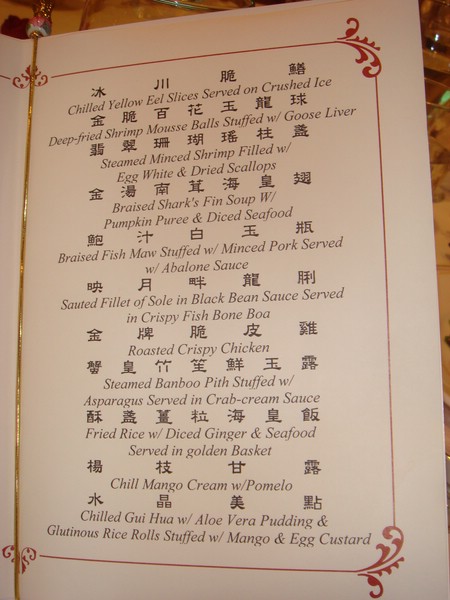 冰川脆鱔
Chilled Yellow Eel Slices Served on Crushed Ice
金脆百花玉龍球
Deep-fried Shrimp Mousse Balls Stuffed w/ Goose Liver
翡翠珊瑚瑤柱盞
Steamed Minced Shrimp Filled w/
Egg White & Dried Scallops
金湯南茸海皇翅
Braised Shark's Fin Soup W/
Pumpkin Puree & Diced Seafood
鮑汁白玉瓶
Braised Fish Maw Stuffed w/ Minced Pork Served
w/ Abalone Sauce
映月畔龍脷
Sauted Fillet of Sole in Black Bean Sauce Served
in Crispy Fish Bone Boa
金牌脆皮雞
Roasted Crispy Chicken
蟹皇竹笙鮮玉露
Steamed Banboo Pith Stuffed w/
Asparagus Served in Crab-cream Sauce
酥盞薑粒海皇飯
Fried Rice w/ Diced Ginger & Seafood
Served in golden Basket
楊枝甘露
Chill Mango Cream w/Pomelo
水晶美點
Chilled Gui Hua w/ Aloe Vera Pudding &
Glutinous Rice Rolls Stuffed w/ Mango & Egg Custard